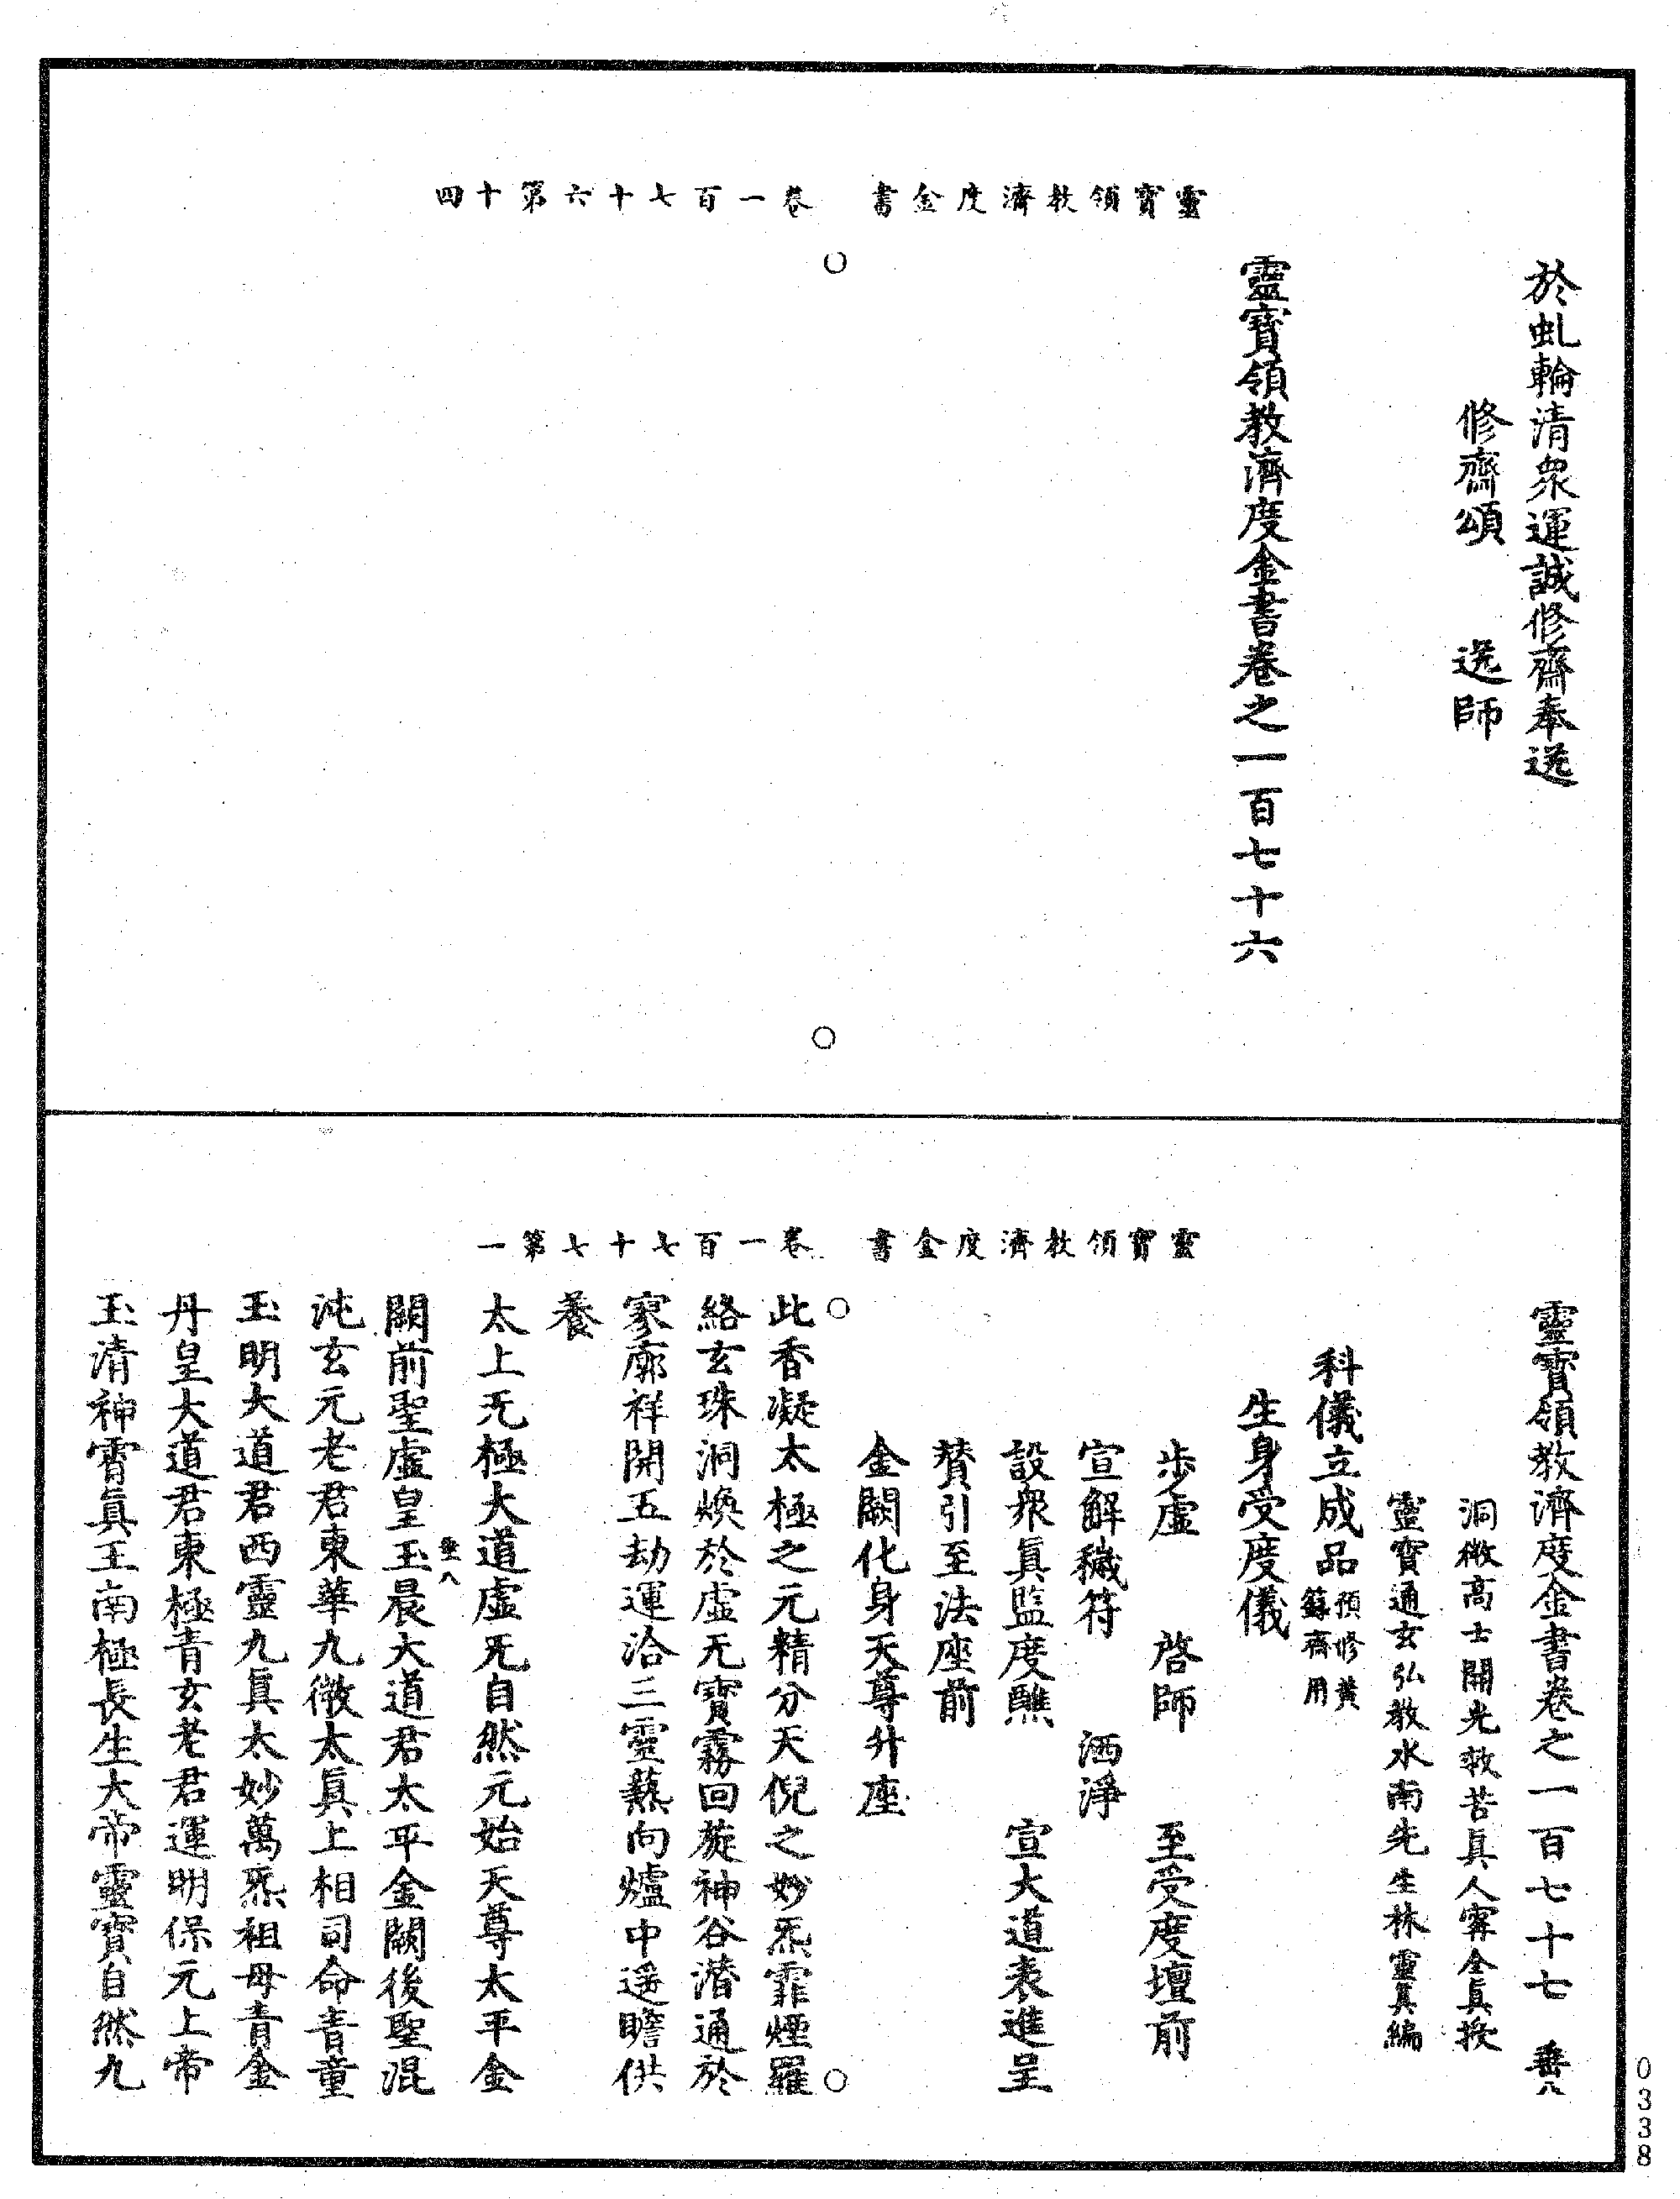 靈寶領教濟度金書　卷一百七十六第十四
於虬輪清衆運誠修齋奉送
修齋頌　送師
靈寶領教濟度金書卷之一百七十六
靈寶領教濟度金書　卷一百七十七第一
靈寶領教濟度金書卷之一百七十七　垂八
洞微高士開光救苦真人寗全真授
靈寶通玄弘教水南先生林靈真編
科儀立成品預修黃籙齋用
生身受度儀
步虛　啓師　至受度壇前
宣解穢符　洒淨
設衆眞監度醮　宣大道表進呈
賛引至法座前
金闕化身天尊升座
此香凝太極之元精分天倪之妙炁霏煙羅
絡玄珠洞煥於虛无寶霧回旋神谷潛通於
寥廓祥開五劫運洽三靈爇向爐中遥瞻供
養
太上无極大道虛无自然元始天尊太平金
闕前聖虛皇玉晨大道君太平金闕後聖混
垂八
沌玄元老君東華九微太眞上相司命青童
玉明大道君西靈九眞太妙萬炁祖母青金
丹皇大道君東極青玄老君運明保元上帝
玉清神霄眞王南極長生大帝靈寶自然九
0338